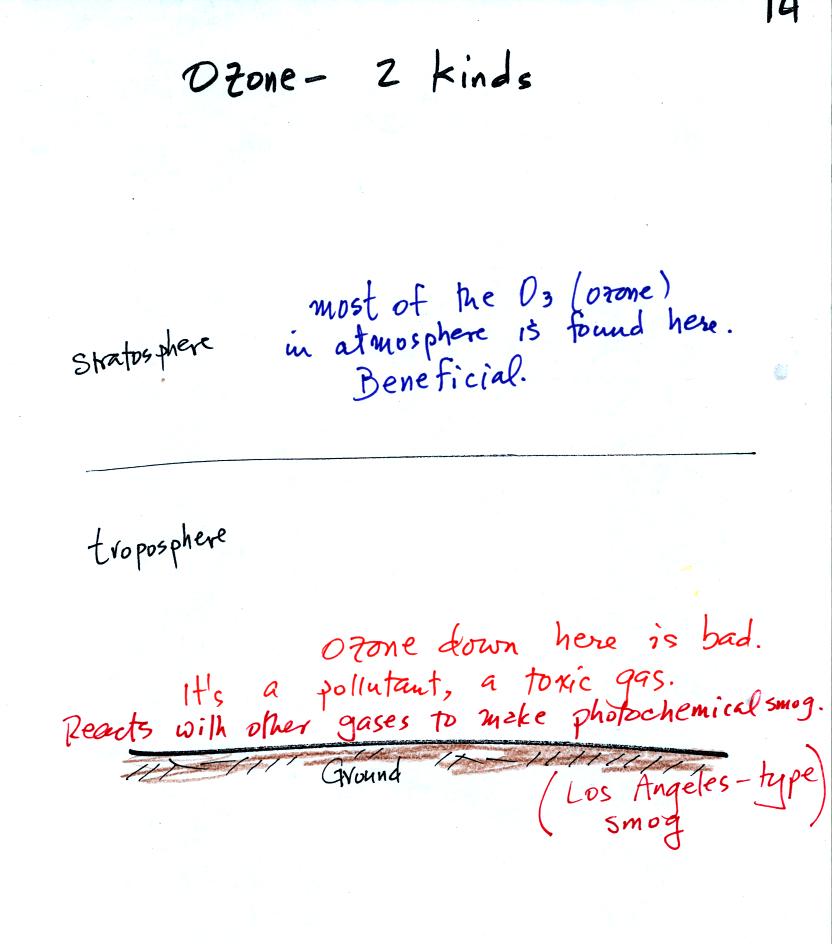 14
Ozone- 2 kinds
most of the O3 (ozone)
in atmosphere is found here.
Beneficial.
Stratosphere
troposphere
Ozone down here is bad.
It's a pollutant, a toxic gas.
Reacts with other gases to make photochemical smog.
Ground
(Los Angeles-type)
smog